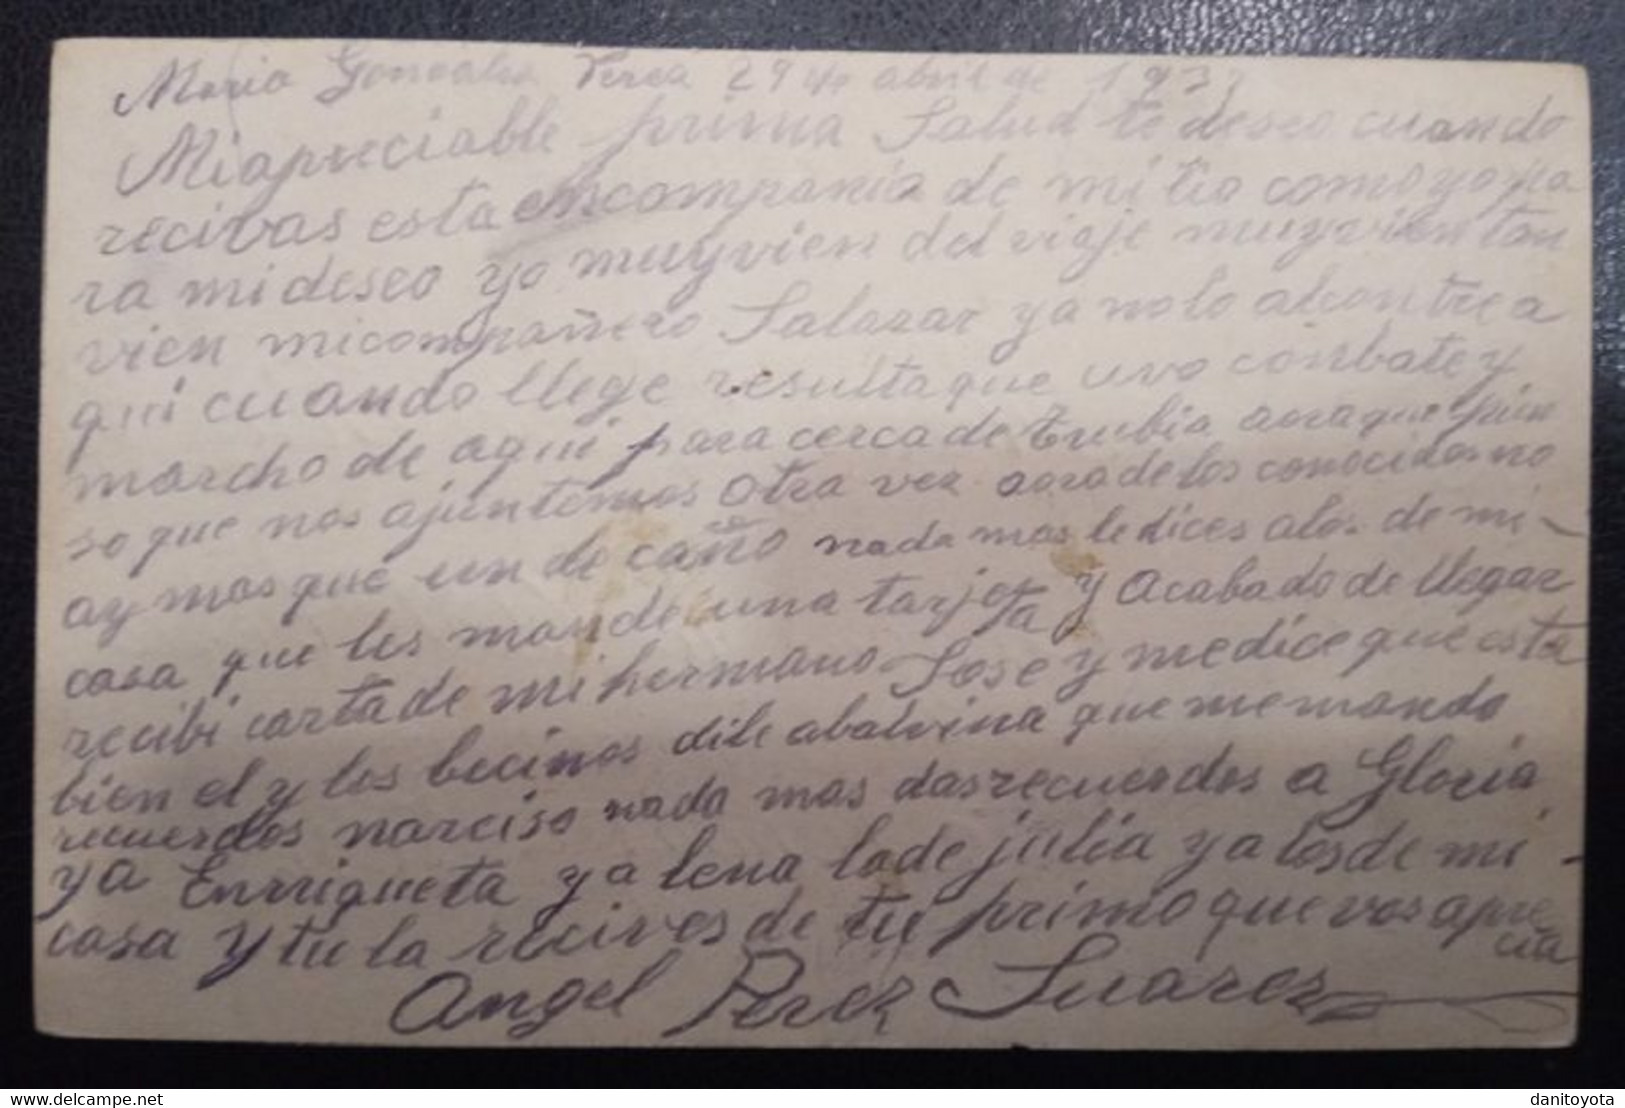 Maria Gonzalez Perea 29 de abril de 193
Mi apreciable prima Salud te deseo cuando
recivas esta encompania de mi tio como yo pa
ra mi deseo yo muy vien del viaje muy vien tan
vien micompañero Salazar ya no lo alcontre a
qui cuando llege resulta que uvo conbate y
marcho de aqui para cerca de trubia aora que pien
so que nos ajuntemos otra vez aora de los conocidos no
ay mas que un de caño nada mas le dices a los de mi -
casa que les mande una tarjeta y acabado de llegar
recibi carta de mi hermano Jose y me dice que esta
bien el y los becinos dile a balvina que me mando
recuerdos narciso nada mas das recuerdos a Gloria
y a Enrriqueta y a lena la de julia y a los de mi -
casa y tu la recives de tu primo que vos apre
cia
Angel Perez Suarez
danitoyota